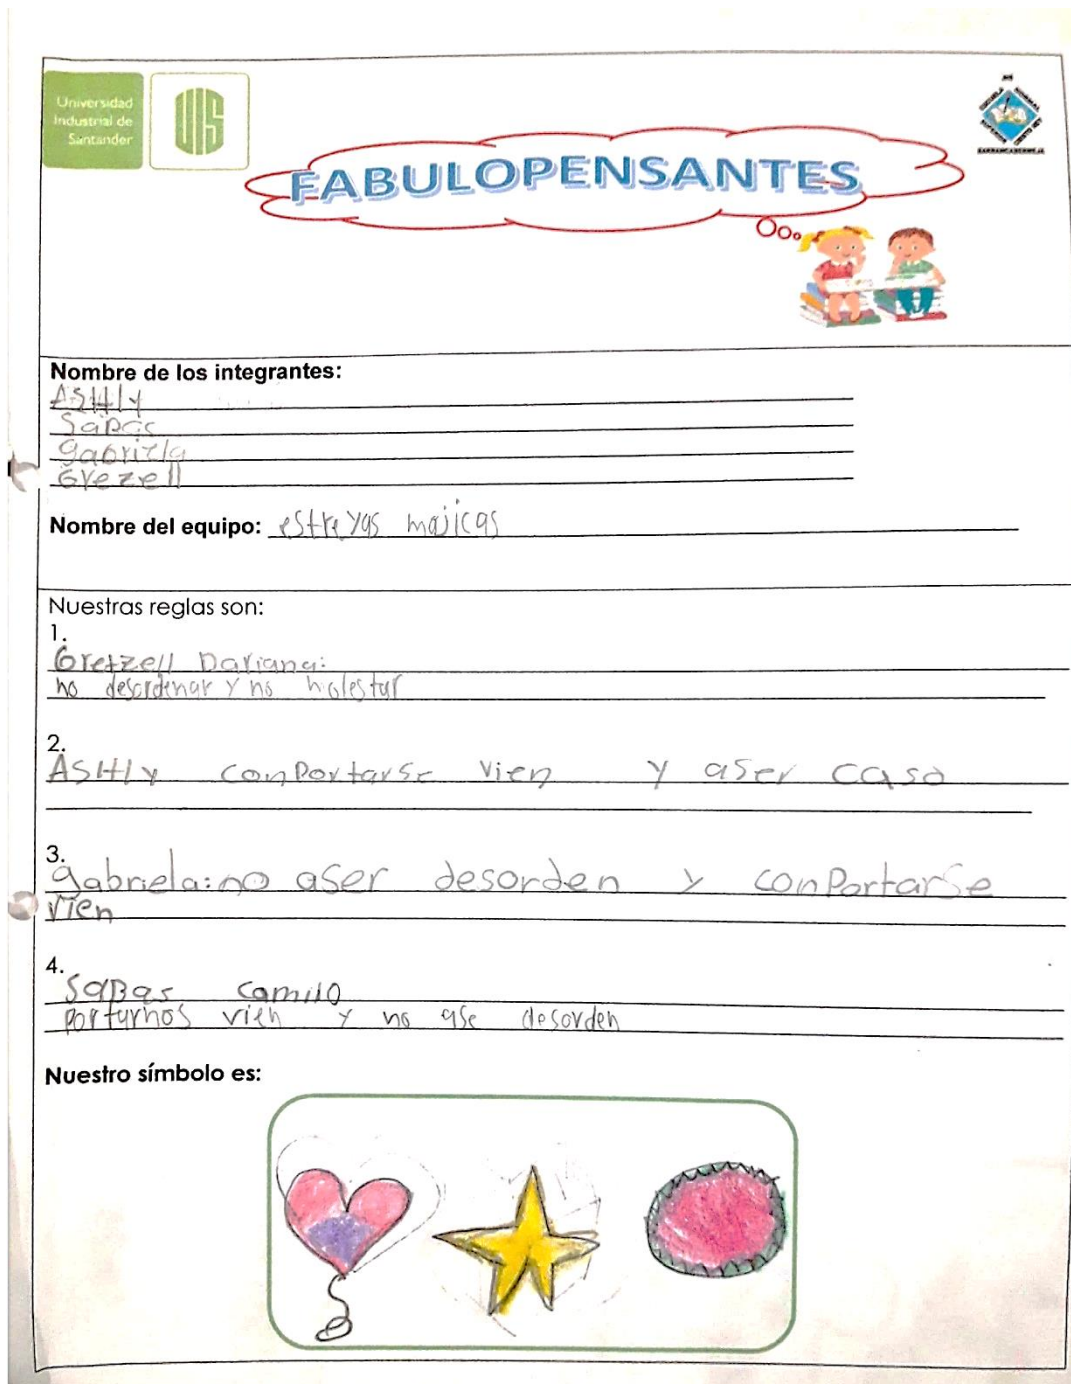 Universidad
Industrial de
Santander
UIS
FABULOPENSANTES
Nombre de los integrantes:
ASHly
Sabas
gabriela
Grezell
Nombre del equipo: estreyas majicas
Nuestras reglas son:
1.
Gretzell Dariana:
no desordenar y no molestar
2.
ASHly conportarse vien y aser caso
3.
gabriela: no aser desorden y conportarse
vien
4.
Sabas camilo
portarnos vien y no ase desorden
Nuestro símbolo es: